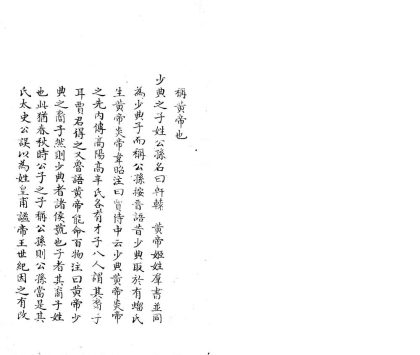 稱黃帝也
少典之子姓公孫名曰軒轅 黃帝姬姓羣書並同
為少典子而稱公孫按晉語昔少典取於有蟜氏
生黃帝炎帝韋昭注曰賈侍中云少典黃帝炎帝
之先內傳高陽高辛氏各有才子八人謂其裔子
耳賈君得之又魯語黃帝能命百物注曰黃帝少
典之裔子然則少典者諸侯號也子者其裔子姓
也此猶春秋時公子之子稱公孫則公孫當是其
氏太史公誤以為姓皇甫謐帝王世紀因之有改